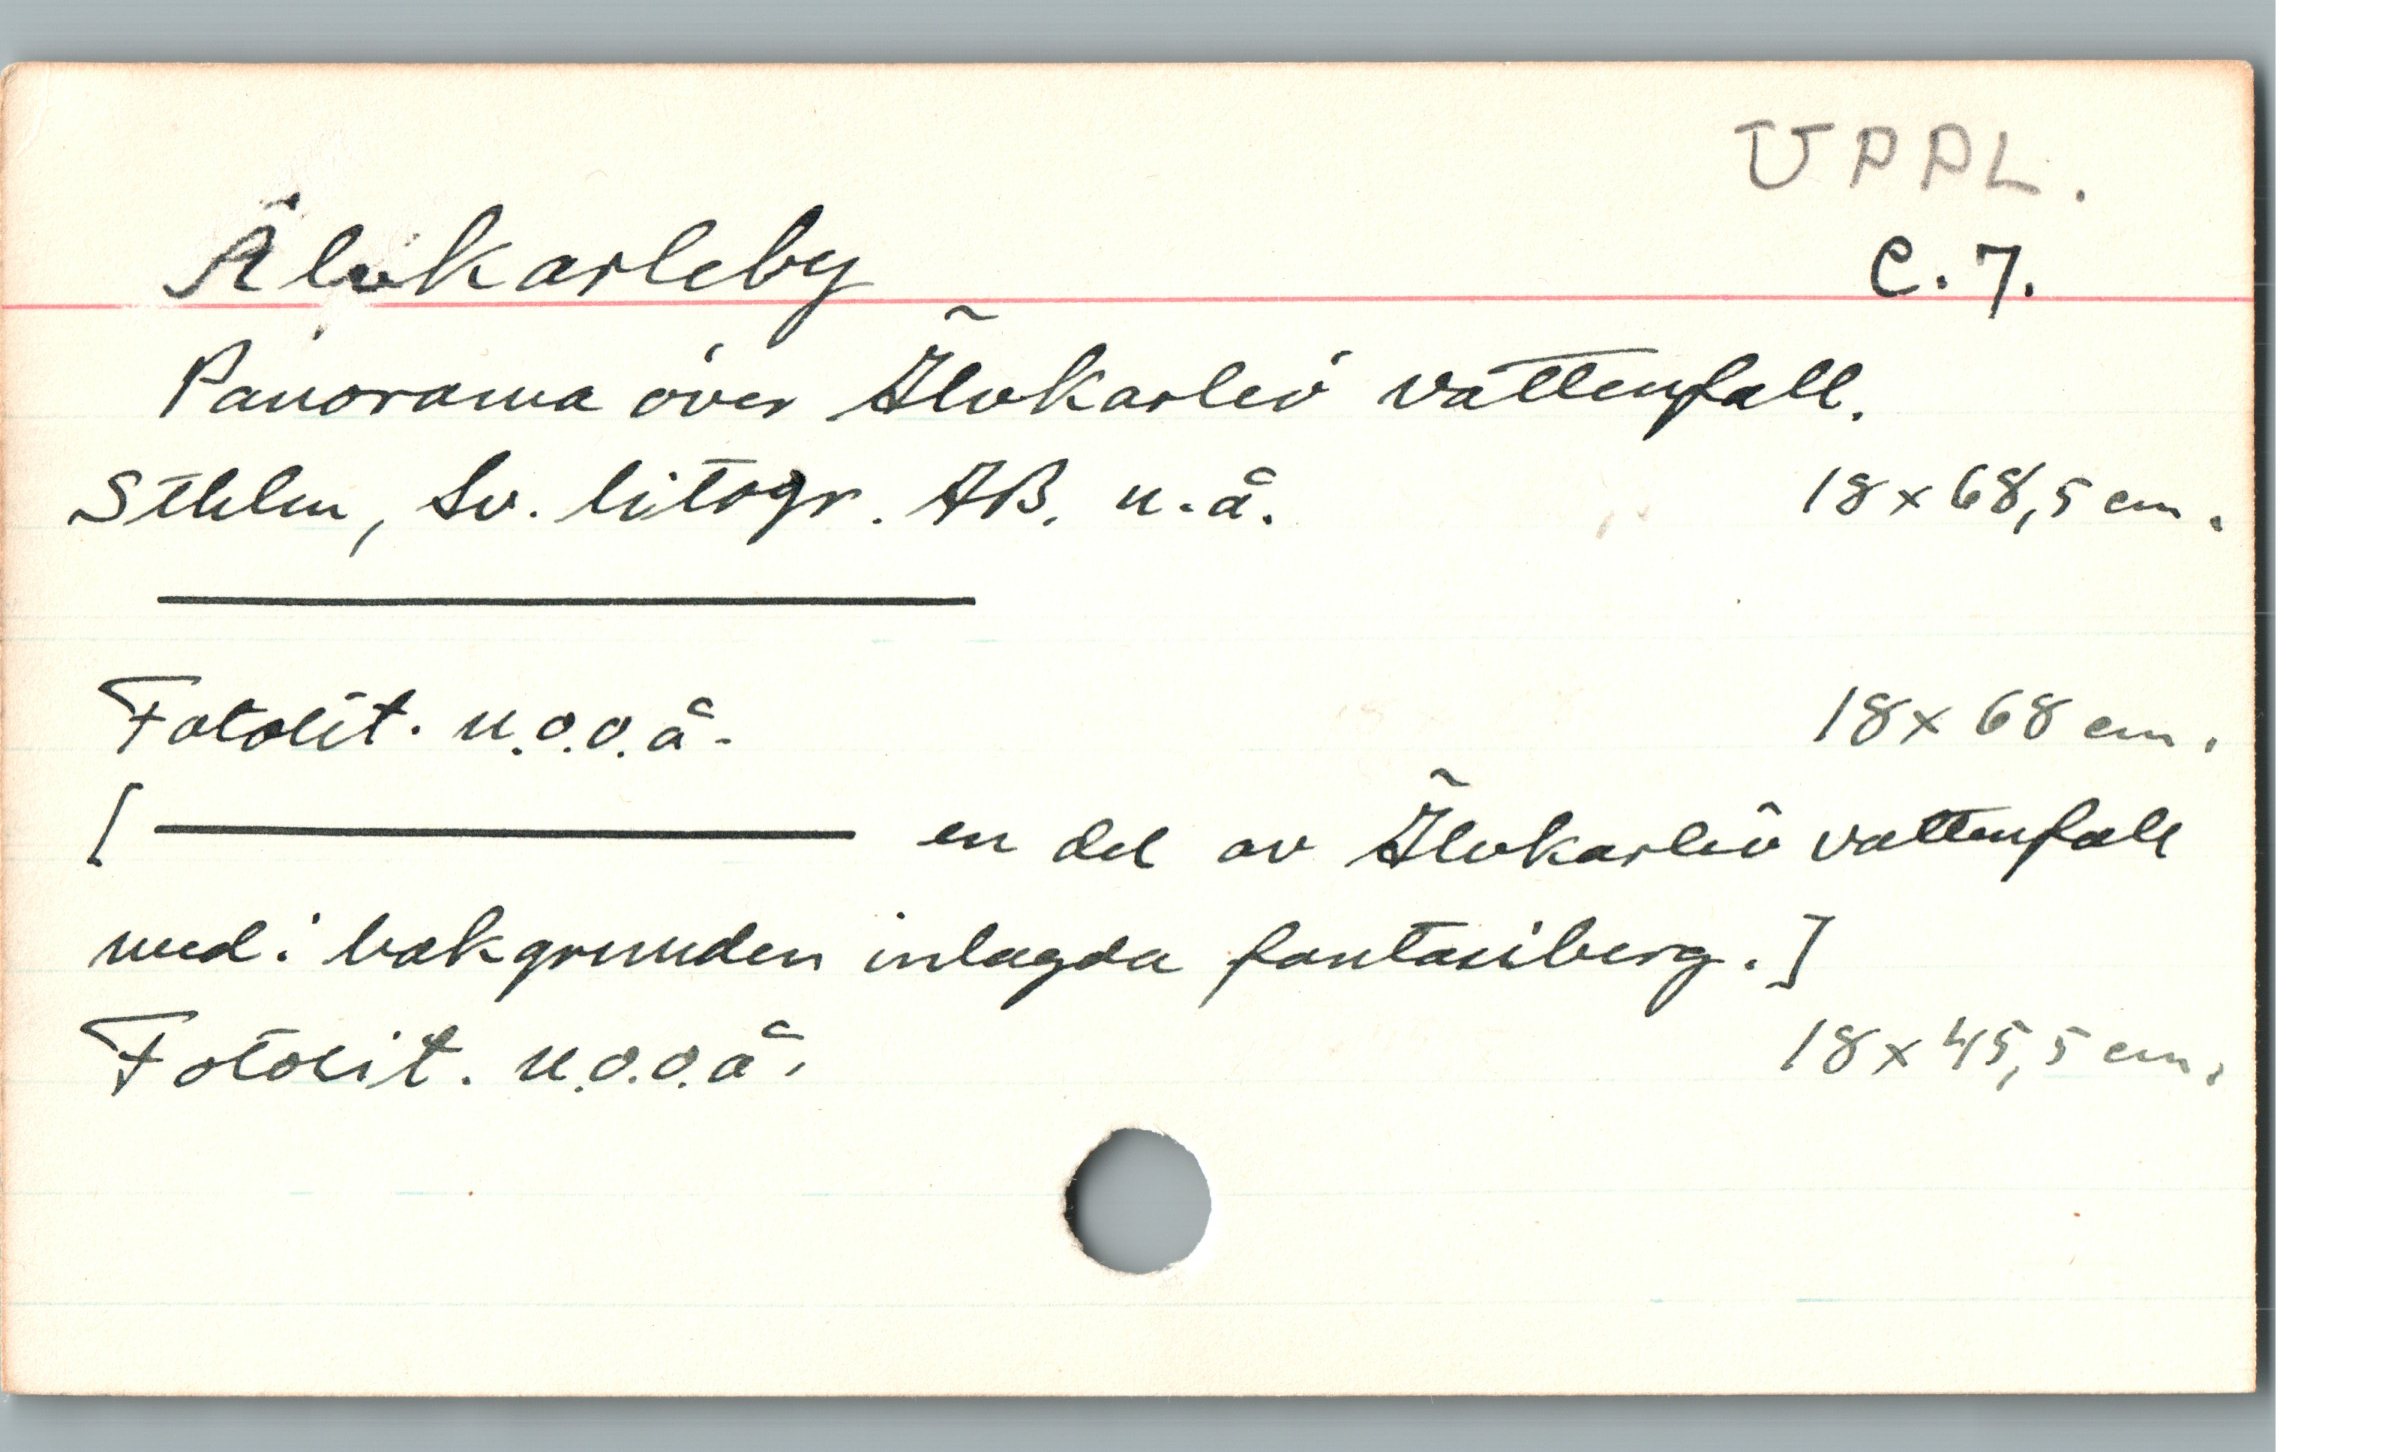 UPPL.
Älvkarleby C.7.
Panorama över Älvkarleö vattenfall.
Sthlm, Sv. litogr. AB. u.å. 18x68,5 cm.
————
Fotolit. u.o.o.å. 18x68 cm.
[———— en del av Älvkarleö vattenfall
med i bakgrunden inlagda fantasiberg.]
Fotolit. u.o.o.å. 18x45,5 cm.